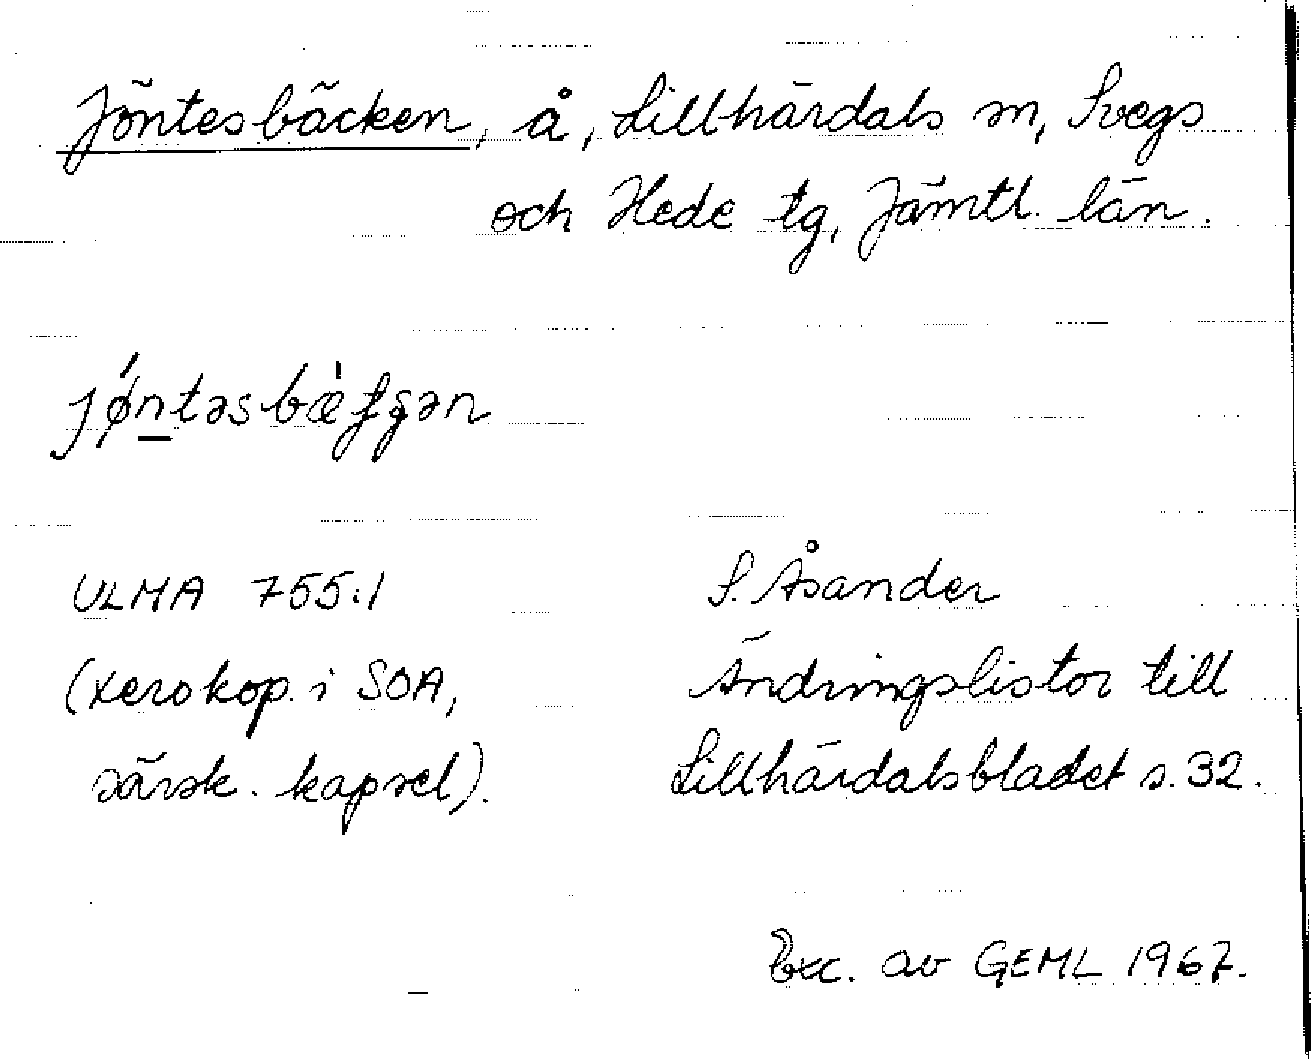 Jöntesbäcken, å, Lillhärdals sn, Svegs
och Hede tg, Jämtl. län.
ULMA 755:1
(xerokop. i SOA,
särsk. kapsel).
S. Åsander
Ändringslistor till
Lillhärdalsbladet s. 32.
Exc. av GEML 1967.